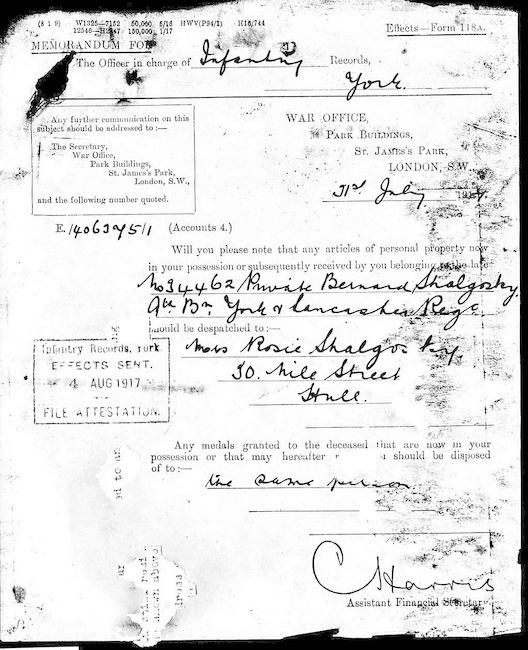 (8 1 9) W1325—7152 50,000 5/16 HWV(P94/1) H16/744
150,000 1/17
Effects—Form 118A.
MEMORANDUM FOR
The Officer in charge of Infantry Records,
York.
Any further communication on this
subject should be addressed to :—
The Secretary,
War Office,
Park Buildings,
St. James's Park,
London, S.W.,
and the following number quoted.
WAR OFFICE,
PARK BUILDINGS,
ST. JAMES'S PARK,
LONDON, S.W.
31st July 191
E. (Accounts 4.)
Will you please note that any articles of personal property now
in your possession or subsequently received by you belonging to the late
No 34462 Private Bernard Shalgosky
9th Bn York & Lancaster Regt.
should be despatched to :—
Mrs Rosie Shalgosky.
30. Nile Street
Hull.
Infantry Records, York
EFFECTS SENT.
4 AUG 1917
FILE ATTESTATION.
Any medals granted to the deceased that are now in your
possession or that may hereafter should be disposed
of to :—
the same person
C Harris
Assistant Financial Secretary